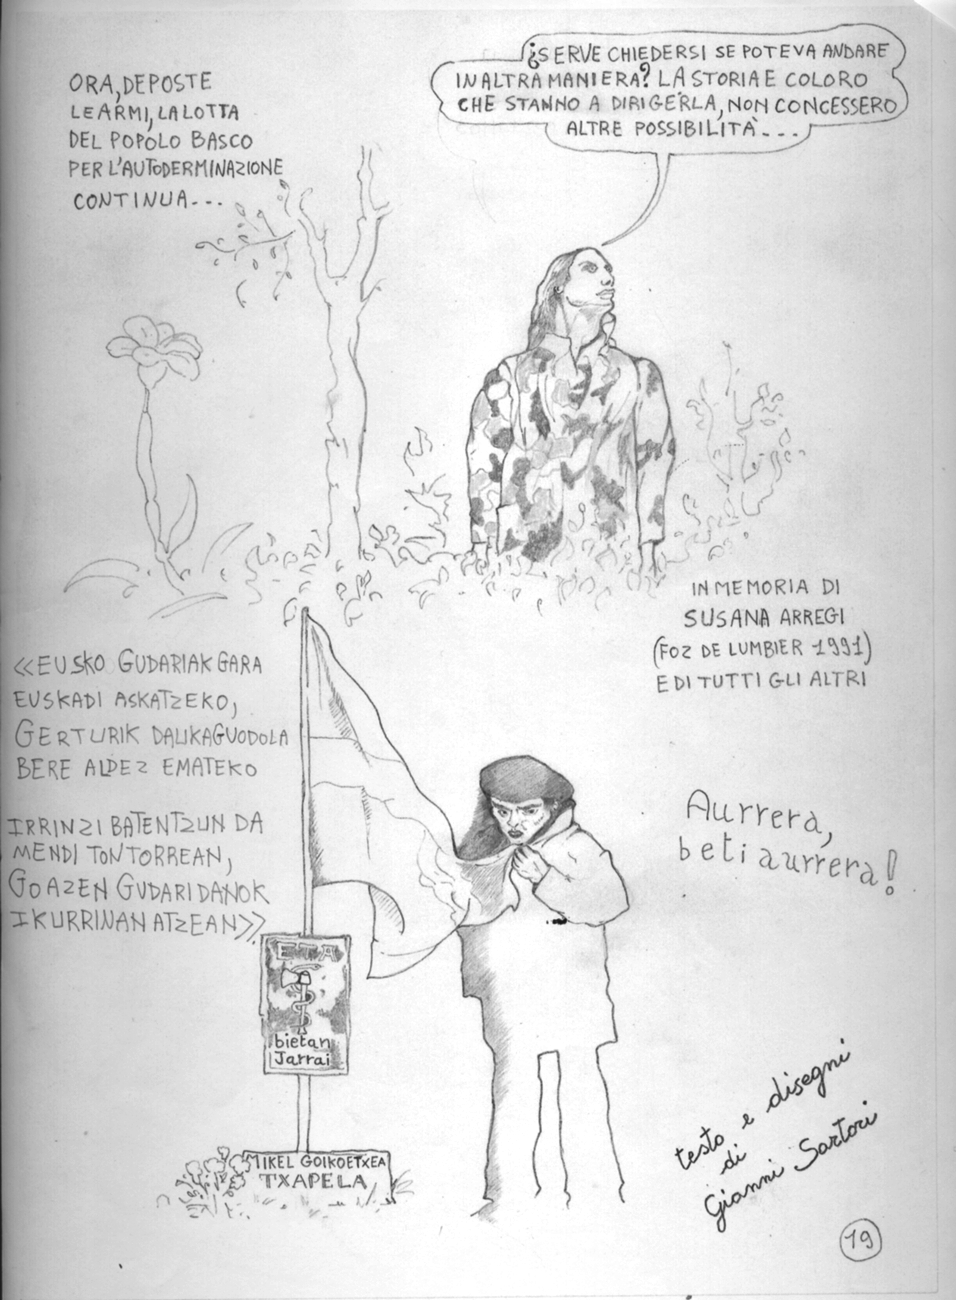 ORA, DEPOSTE
LE ARMI, LA LOTTA
DEL POPOLO BASCO
PER L'AUTODERMINAZIONE
CONTINUA...
¿SERVE CHIEDERSI SE POTEVA ANDARE
IN ALTRA MANIERA? LA STORIA E COLORO
CHE STANNO A DIRIGERLA, NON CONCESSERO
ALTRE POSSIBILITÀ...
IN MEMORIA DI
SUSANA ARREGI
(FOZ DE LUMBIER 1991)
E DI TUTTI GLI ALTRI
«EUSKO GUDARIAK GARA
EUSKADI ASKATZEKO,
GERTURIK DAUKAGUODOLA
BERE ALDEZ EMATEKO
IRRINZI BATENTZUN DA
MENDI TONTORREAN,
GOAZEN GUDARI DANOK
IKURRINAN ATZEAN»
Aurrera,
beti aurrera!
ETA
bietan
Jarrai
MIKEL GOIKOETXEA
TXAPELA
testo e disegni
di
Gianni Sartori
19